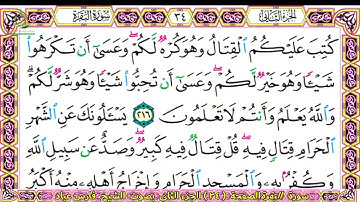 الجزء الثاني ٣٤ سورة البقرة
كُتِبَ عَلَيْكُمُ الْقِتَالُ وَهُوَ كُرْهٌ لَّكُمْ وَعَسَىٰ أَن تَكْرَهُوا
شَيْـًٔا وَهُوَ خَيْرٌ لَّكُمْ وَعَسَىٰ أَن تُحِبُّوا شَيْـًٔا وَهُوَ شَرٌّ لَّكُمْ
وَاللَّهُ يَعْلَمُ وَأَنتُمْ لَا تَعْلَمُونَ ٢١٦ يَسْـَٔلُونَكَ عَنِ الشَّهْرِ
الْحَرَامِ قِتَالٍ فِيهِ قُلْ قِتَالٌ فِيهِ كَبِيرٌ وَصَدٌّ عَن سَبِيلِ اللَّهِ
وَكُفْرٌ بِهِ وَالْمَسْجِدِ الْحَرَامِ وَإِخْرَاجُ أَهْلِهِ مِنْهُ أَكْبَرُ
سورة البقرة الصفحة (٣٤) الجزء الثاني بصوت الشيخ فارس عباد